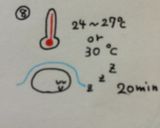 ⑧
24~27℃
or
30℃
z z z
20min